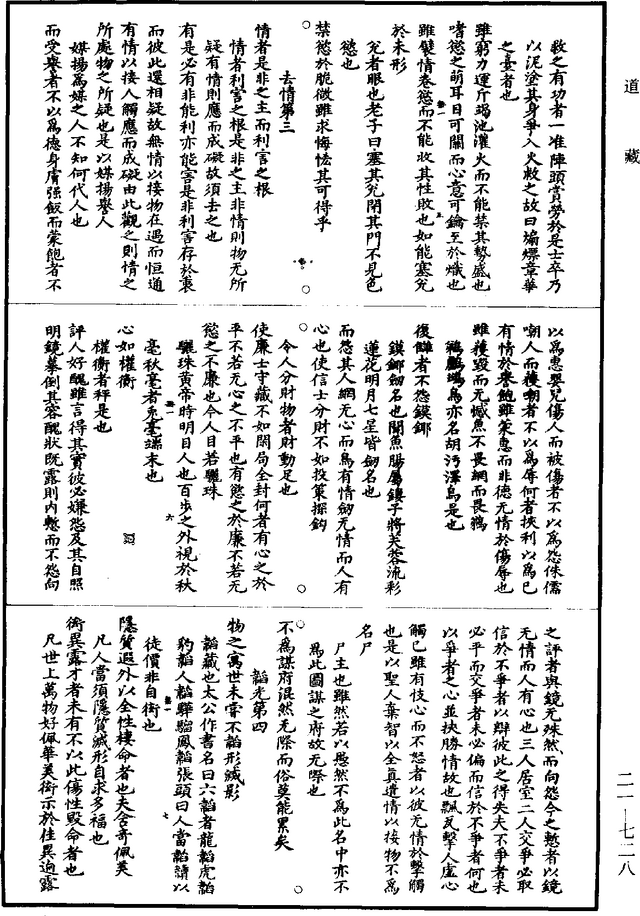 道藏
救之有功者一准陣頭賞勞於是士卒乃
以泥塗其身爭入火救之故曰煸熛章華
之臺者也
雖窮力運斤竭池灌火而不能禁其勢盛也
嗜慾之萌耳目可關而心意可鑰至於熾也
雖襞情卷慾而不能收其性敗也如能塞兌
於未形
兌者眼也老子曰塞其兌閉其門不見色
慾也
禁慾於脆微雖求悔恡其可得乎
去情第三
情者是非之主而利言之根
情者利害之根是非之主非情則物无所
疑有情則應而成礙故須去之也
有是必有非能利亦能害是非利害存於衷
而彼此還相疑故無情以接物在遇而恒通
有情以接人觸應而成礙由此觀之則情之
所處物之所疑也是以媒揚譽人
媒揚爲媒之人不知何代人也
而受譽者不以爲德身膚强飯而蒙飽者不
以爲惠嬰兒傷人而被傷者不以爲怨侏儒
嘲人而獲嘲者不以爲辱何者挾利以爲己
有情於眷飽雖蒙惠而非德无情於傷辱也
雖獲毀而无憾魚不畏網而畏鵜
鵜鶘鴮爲亦名胡污澤鳥是也
復讎者不怨鏌鋣
鏌鋣劒名也闔魚腸屬鏤子將芙蓉流彩
蓮花明月七星皆劒名也
而怨其人網无心而鳥有情劒无情而人有
心也使信士分財不如投策探鈎
今人分財物者財動足也
使廉士守藏不如閉局全封何者有心之於
平不若无心之不平也有慾之於廉不若无
慾之不廉也今人目若驪珠
驪珠黃帝時明目人也百步之外視於秋
毫秋毫者兔毫端末也
心如權衡
權衡者秤是也
評人好醜雖言得其實彼必嫌怨及其自照
明鏡摹倒其容醜狀既露則内慙而不怨向
之評者與鏡无殊然而向怨今之慙者以鏡
无情而人有心也三人居室二人交爭必取
信於不爭者以辯彼此之得失夫不爭者未
必平而交爭者未必偏而信於不爭者何也
以爭者之心並挾勝情故也飄瓦擊人虛心
觸己雖有忮心而不怒者以彼无情於擊觸
也是以聖人棄智以全真遣情以接物不爲
名尸
尸主也雖然若以愚然不爲此名中亦不
爲此圖謀之府故无際也
不爲謀府混然无際而俗莫能累矣
韜光第四
物之寓世未嘗不韜形緘影
韜藏也太公作書名曰六韜者龍韜虎韜
豹韜人韜驊騮鳳韜張頭曰人當韜讀以
徒價非自衒也
隱質遐外以全性棲命者也夫含奇佩美
凡人當須隱質緘形自求多福也
衒異露才者未有不以此傷性毀命者也
凡世上萬物好佩華美衒示於佳異逈露
二一—七二八